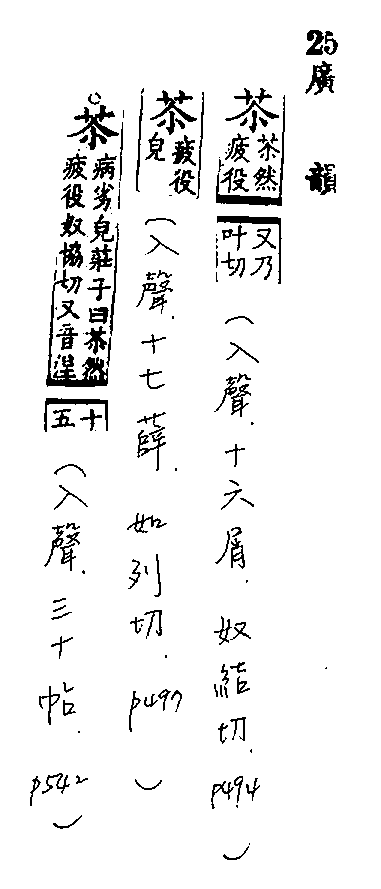 25 廣韻
苶 苶然疲役 又乃叶切 (入聲.十六屑.奴結切.p494)
苶 疲役皃 (入聲.十七薛.如列切.p497)
苶 病劣皃莊子曰苶然疲役奴協切又音涅 十五 (入聲.三十帖.p542)